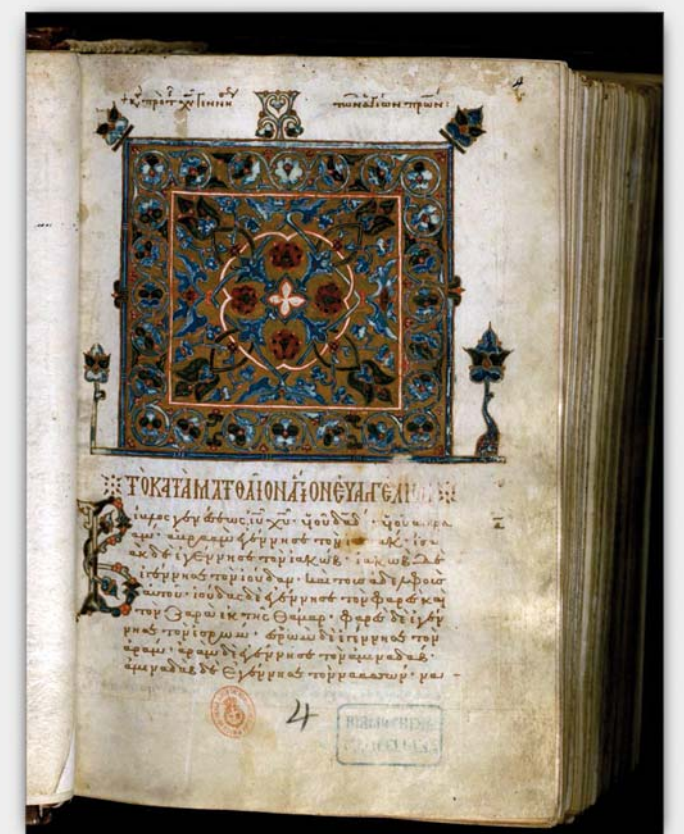 4
τῶν ἁγίων πρων:
ΤΟ ΚΑΤΑ ΜΑΤΘΑΙΟΝ ΑΓΙΟΝ ΕΥΑΓΓΕΛΙΟΝ
Βίβλος γενέσεως ιυ χυ · υἱοῦ δαδ · υἱοῦ ἀβρα
αμ · ἀβραὰμ ἐγέννησε τὸν ισαακ · ἰσα
ὰκ δὲ ἐγέννησε τὸν ἰακώβ · ἰακὼβ δὲ
ἐγέννησε τὸν ἰούδαν · καὶ τοὺς ἀδελφοὺς
αὐτοῦ · ἰούδας δὲ ἐγέννησε τὸν φαρὲς καὶ
τὸν Ζαρὰ ἐκ τῆς Θάμαρ · φαρὲς δὲ ἐγέν
νησε τὸν ἐσρώμ · ἐσρὼμ δὲ ἐγέννησε τὸν
ἀράμ · ἀρὰμ δὲ ἐγέννησε τὸν ἀμιναδάβ ·
ἀμιναδὰβ δὲ ἐγέννησε τὸν ναασσών · να
4